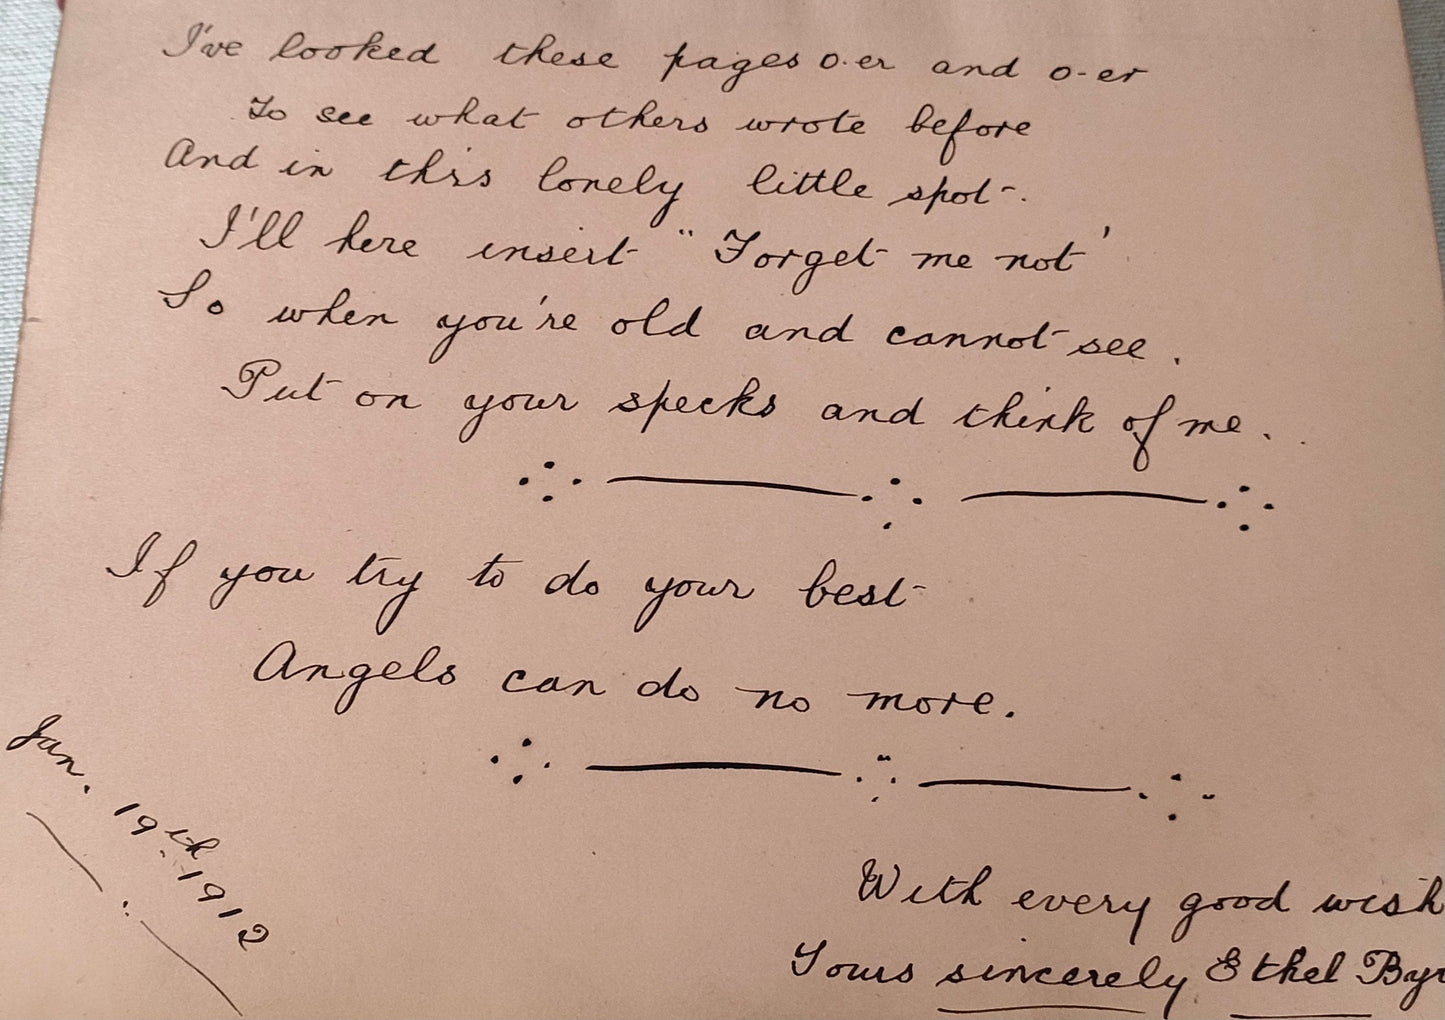 I've looked these pages o-er and o-er
To see what others wrote before
And in this lonely little spot-.
I'll here insert "Forget me not'
So when you're old and cannot see.
Put on your specks and think of me.
If you try to do your best
Angels can do no more.
Jan. 19th. 1912
With every good wish
Yours sincerely Ethel